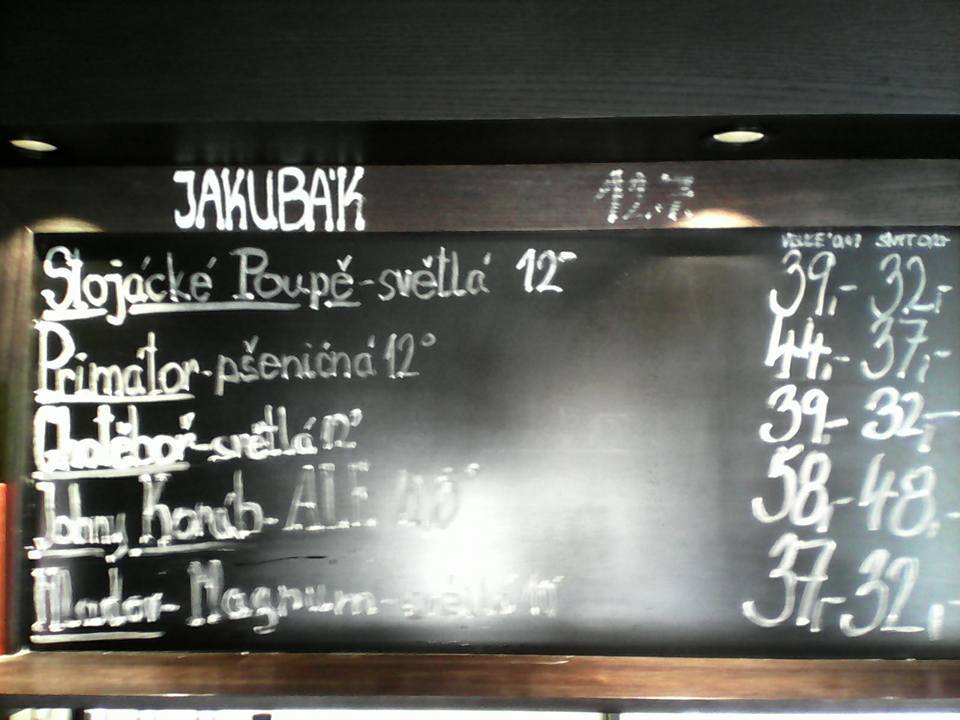 JAKUBÁK 12.7.
Stojácké Poupě - světlá 12° 39,- 32,-
Primátor - pšeničná 12° 44,- 37,-
Chotěboř - světlá 12° 39,- 32,-
Johny Koráb - ALE 58,- 48,-
Magnum - světlá 11° 37,- 32,-